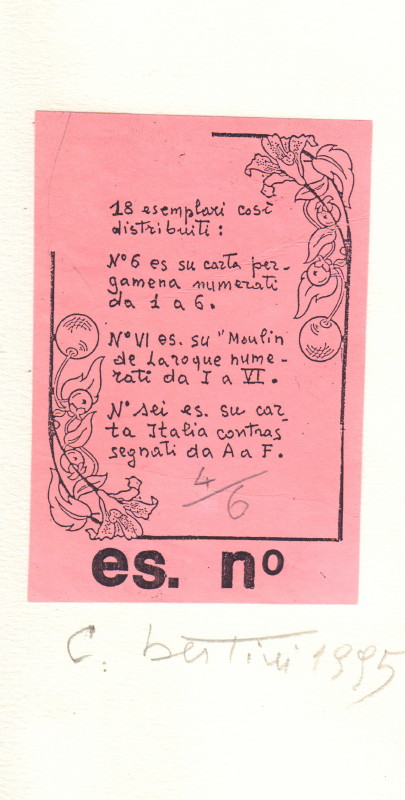 18 esemplari così
distribuiti:
N° 6 es su carta per-
gamena numerati
da 1 a 6.
N° VI es. su "Moulin
de Laroque nume-
rati da I a VI.
N° sei es. su car_
ta Italia contras_
segnati da A a F.
4/6
es. nº
C. bertini 1995